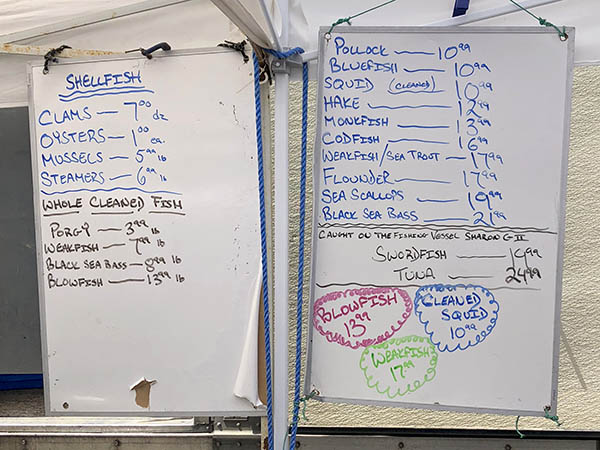 SHELLFISH
CLAMS — 7.00 dz
OYSTERS — 1.00 ea.
MUSSELS — 5.99 lb
STEAMERS — 6.99 lb
WHOLE CLEANED FISH
PORGY — 3.99 lb
WEAKFISH — 7.99 lb
BLACK SEA BASS — 8.99 lb
BLOWFISH — 13.99 lb
POLLOCK — 10.99
BLUEFISH — 10.99
SQUID (CLEANED) 10.99
HAKE — 12.99
MONKFISH — 13.99
CODFISH — 16.99
WEAKFISH/SEA TROUT — 17.99
FLOUNDER — 17.99
SEA SCALLOPS — 19.99
BLACK SEA BASS — 21.99
CAUGHT ON THE FISHING VESSEL SHARON G II
SWORDFISH — 19.99
TUNA — 24.99
BLOWFISH
13.99
CLEANED
SQUID
10.99
WEAKFISH
17.99